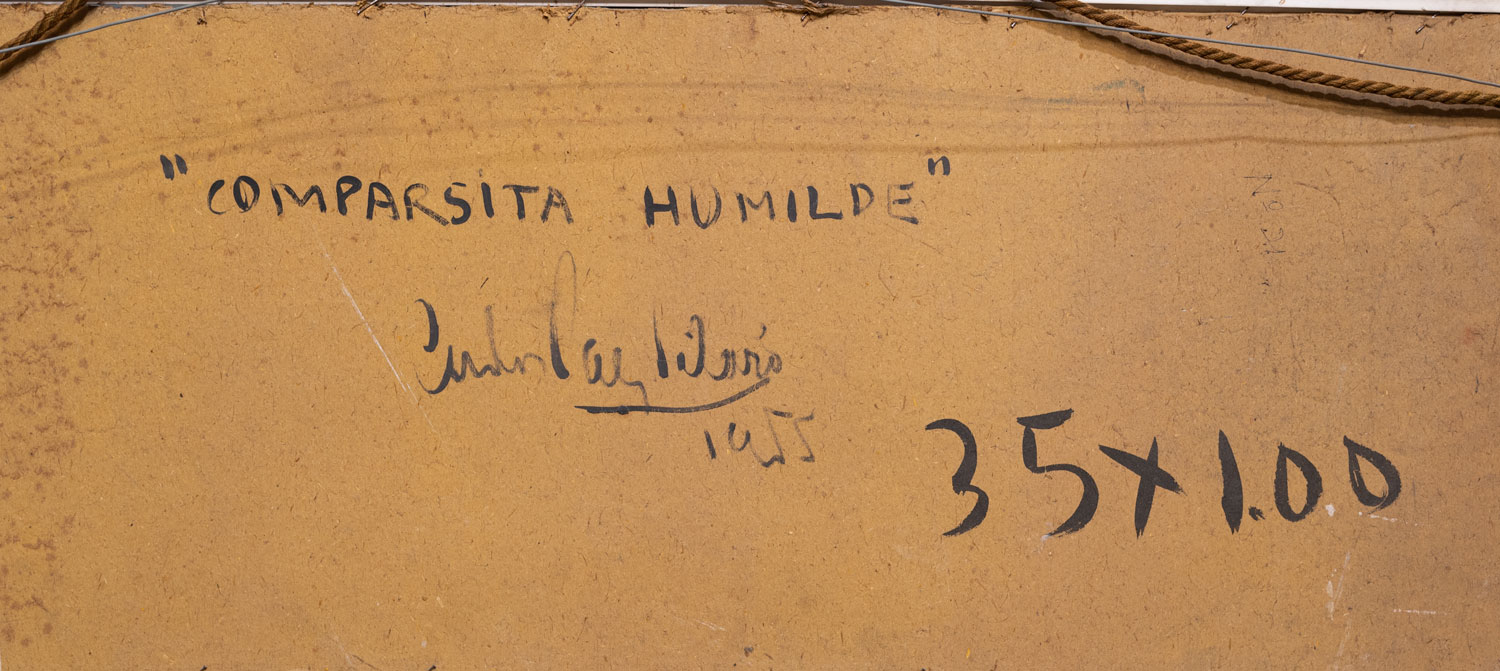 "COMPARSITA HUMILDE"
Carlos Paez Vilaró
1955
35x1.00